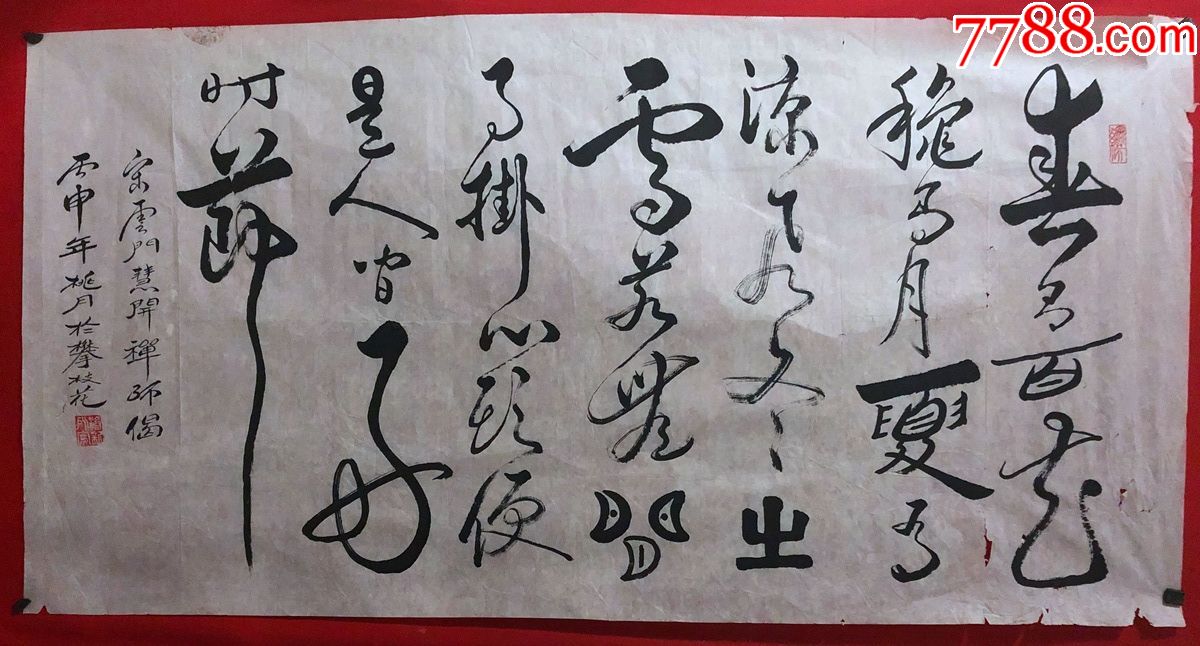 7788.com
春有百花
穐有月夏有
涼风冬有
雪若無閒
事掛心頭便
是人间好
时節
宋雲門慧開禪師偈
丙申年桃月於攀枝花